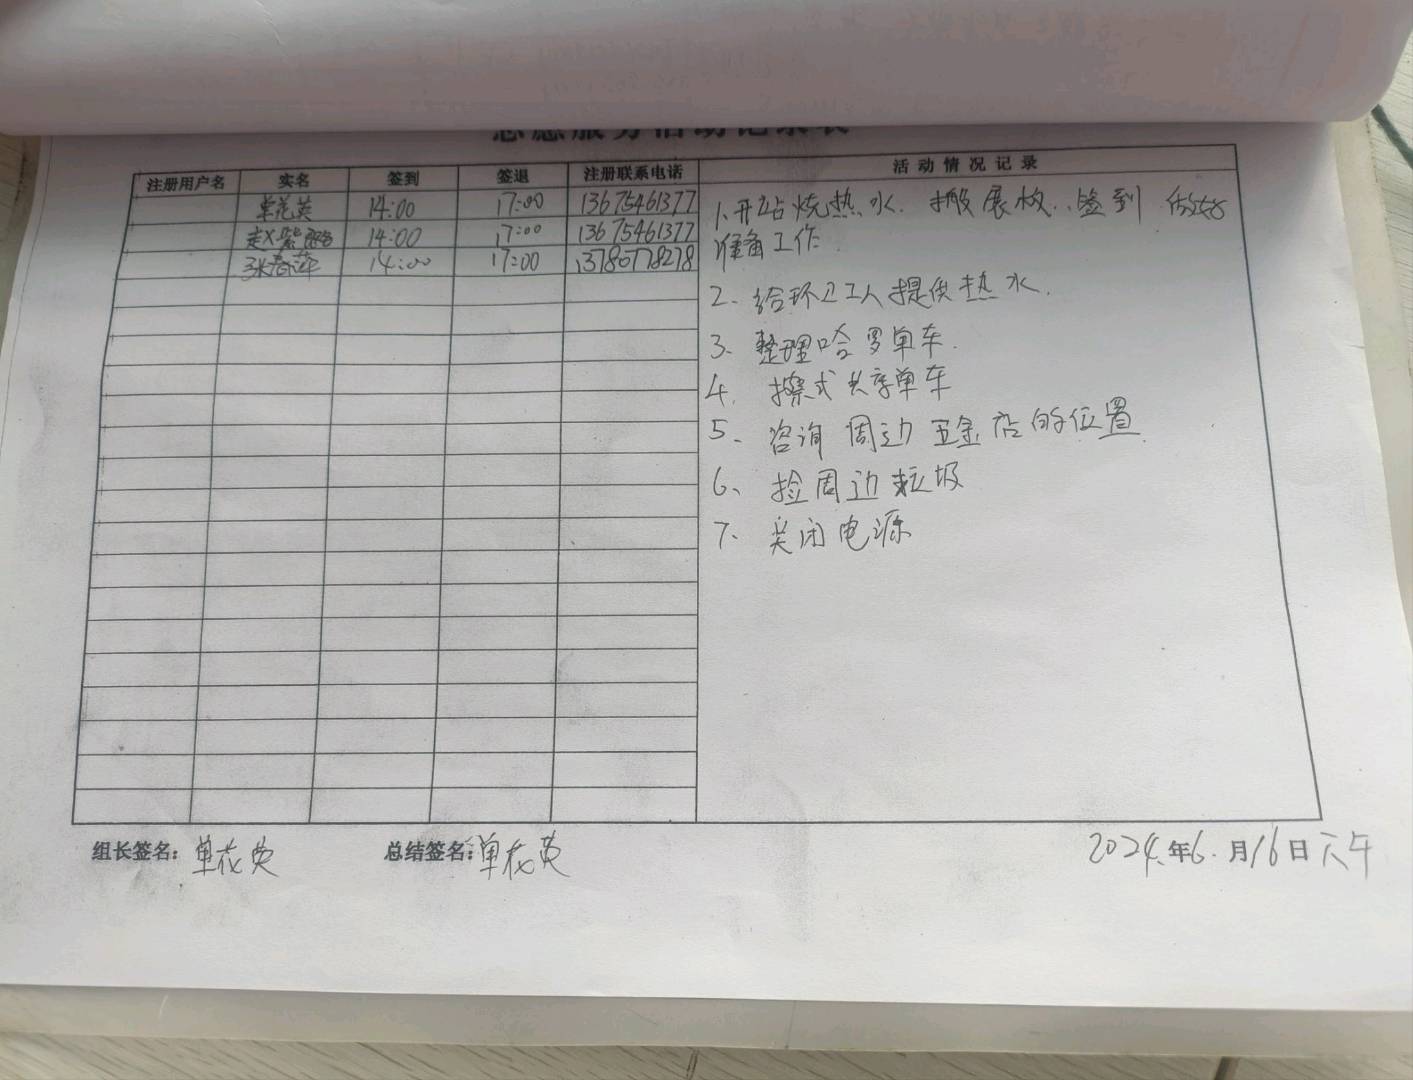 志愿服务活动记录表
注册用户名 实名 签到 签退 注册联系电话 活动情况记录
单花英 14:00 17:00 13675461377
赵紫 14:00 17:00 13675461377
张春萍 14:00 17:00 13780778278
1、开站烧热水. 搬展板..签到 做好
准备工作
2、给环卫工人提供热水.
3、整理哈罗单车.
4. 擦式共享单车
5、咨询周边五金店的位置
6、捡周边垃圾
7、关闭电源
组长签名：单花英 总结签名：单花英 2024.年6.月16日下午